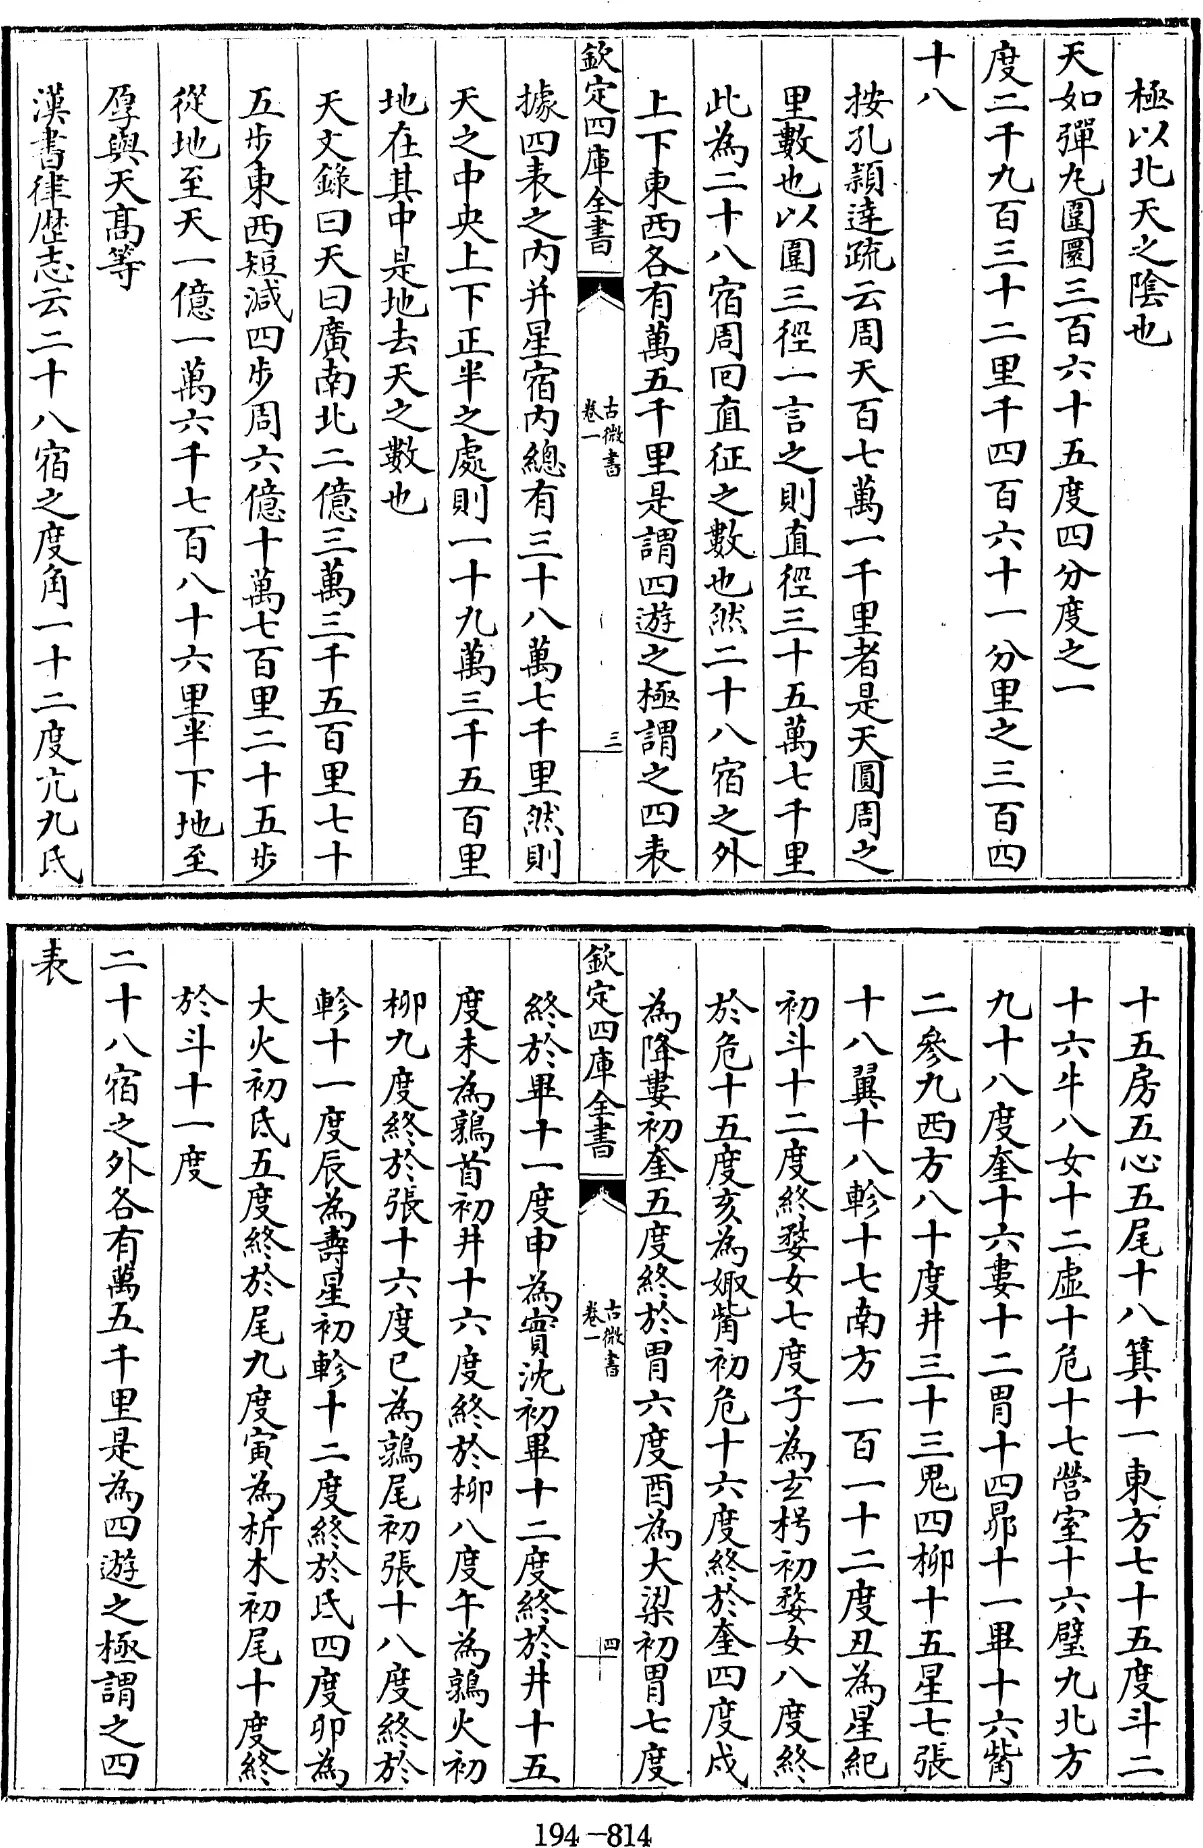 極以北天之陰也
天如彈丸圍圜三百六十五度四分度之一
度二千九百三十二里千四百六十一分里之三百四
十八
按孔頴達疏云周天百七萬一千里者是天圓周之
里數也以圍三徑一言之則直徑三十五萬七千里
此為二十八宿周回直徑之數也然二十八宿之外
上下東西各有萬五千里是謂四遊之極謂之四表
欽定四庫全書
古微書
卷一
三
據四表之内并星宿内總有三十八萬七千里然則
天之中央上下正半之處則一十九萬三千五百里
地在其中是地去天之數也
天文錄曰天曰廣南北二億三萬三千五百里七十
五步東西短減四步周六億十萬七百里二十五步
從地至天一億一萬六千七百八十六里半下地至
厚與天髙等
漢書律歴志云二十八宿之度角一十二度亢九氐
十五房五心五尾十八箕十一東方七十五度斗二
十六牛八女十二虚十危十七營室十六壁九北方
九十八度奎十六婁十二胃十四昴十一畢十六觜
二參九西方八十度井三十三鬼四柳十五星七張
十八翼十八軫十七南方一百一十二度丑為星紀
初斗十二度終婺女七度子為𤣥枵初婺女八度終
於危十五度亥為娵觜初危十六度終於奎四度戍
為降婁初奎五度終於胃六度酉為大梁初胃七度
欽定四庫全書
古微書
卷一
四
終於畢十一度申為實沈初畢十二度終於井十五
度未為鶉首初井十六度終於柳八度午為鶉火初
柳九度終於張十六度已為鶉尾初張十八度終於
軫十一度辰為壽星初軫十二度終於氐四度卯為
大火初氐五度終於尾九度寅為析木初尾十度終
於斗十一度
二十八宿之外各有萬五千里是為四遊之極謂之四
表
194-814